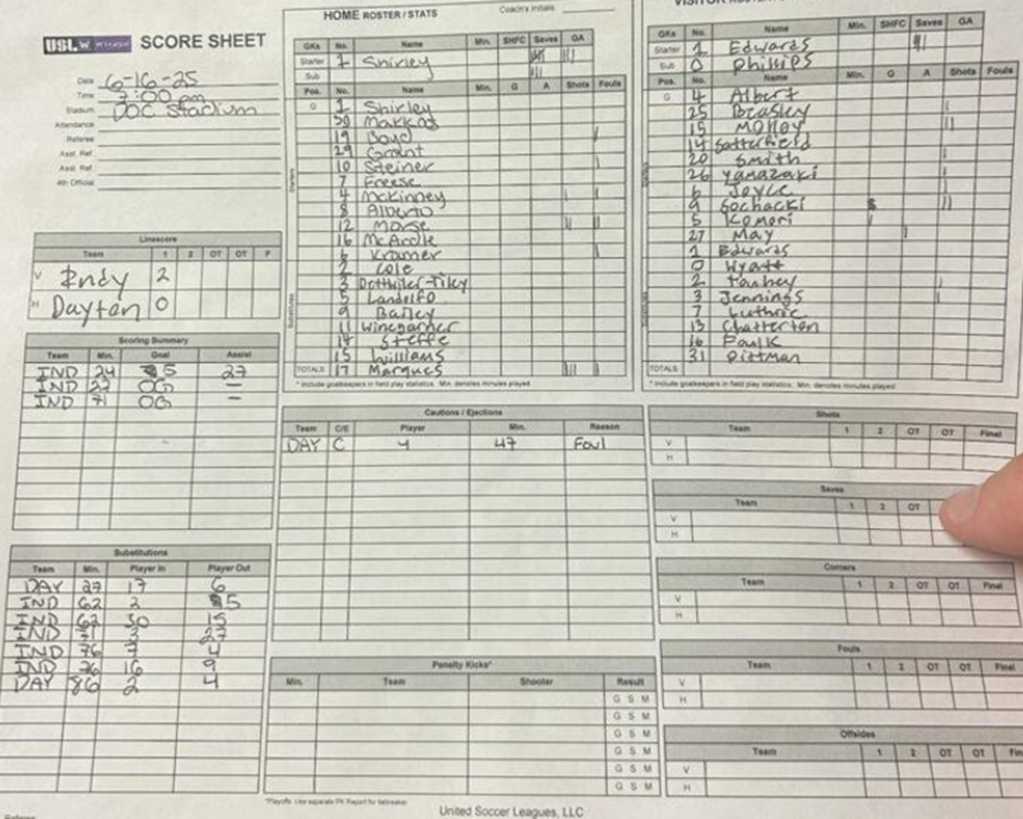 USL W League SCORE SHEET
Date 6-16-25
Time 7:00 pm
Stadium DOC Stadium
Attendance
Referee
Asst. Ref.
Asst. Ref.
4th Official
Linescore
Team 1 2 OT OT P
V Indy 2
H Dayton 0
Scoring Summary
Team Min. Goal Assist
IND 24 5 27
IND 27 OG —
IND 71 OG —
Substitutions
Team Min. Player In Player Out
DAY 27 17 6
IND 62 2 5
IND 62 30 15
IND 71 3 27
IND 76 7 4
IND 76 16 9
DAY 86 2 4
HOME ROSTER / STATS Coach's Initials:
GKs No. Name Min. SHFC Saves GA
Starter 1 Shirley
Sub
Pos. No. Name Min. G A Shots Fouls
G 1 Shirley
30
19 Boyd
29 Grant
10 Steiner
7 Freese
4 McKinney
8 Alberto
12 Morse
16 McArdle
6 Kramer
2 Cole
3
5 Landolfo
9 Bailey
11 Winegardner
14 Steffe
15 Williams
TOTALS 17 Marques
* Include goalkeepers in field play statistics. Min. denotes minutes played
Cautions / Ejections
Team C/E Player Min. Reason
DAY C 4 47 Foul
Penalty Kicks*
Min. Team Shooter Result
G S M
G S M
G S M
G S M
G S M
G S M
*Playoffs: Use separate PK Report for tiebreaker
United Soccer Leagues, LLC
VISITOR ROSTER
GKs No. Name Min. SHFC Saves GA
Starter 1 Edwards
Sub 0 Phillips
Pos. No. Name Min. G A Shots Fouls
G 4 Albert
25 Beasley
15 Molloy
14 Satterfield
20 Smith
26 Yamazaki
6 Joyce
9 Sochacki
5 Komori
27 May
1 Edwards
0 Wyatt
2
3 Jennings
7 Guthrie
13 Chatterton
16 Paulk
31 Pittman
TOTALS
* Include goalkeepers in field play statistics. Min. denotes minutes played
Shots
Team 1 2 OT OT Final
V
H
Saves
Team 1 2 OT
V
H
Corners
Team 1 2 OT OT Final
V
H
Fouls
Team 1 2 OT OT Final
V
H
Offsides
Team 1 2 OT OT Fin
V
H